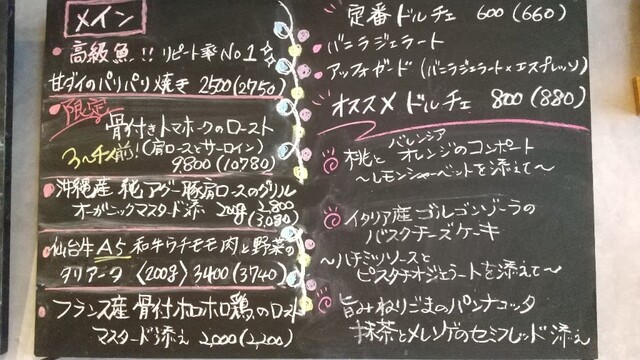 メイン
・高級魚!! リピート率No1
甘ダイのパリパリ焼き 2500(2750)
・限定
骨付きトマホークのロースト
3〜4人前!(肩ロースとサーロイン)
9,800(10780)
・沖縄産 純アグー豚肩ロースのグリル
オーガニックマスタード添 200g 2,800
(3,080)
・仙台牛A5 和牛ウチモモ肉と野菜の
タリアータ 〈200g〉 3400(3740)
・フランス産 骨付ホロホロ鶏のロースト
マスタード添え 2,000(2,200)
定番ドルチェ 600(660)
バニラジェラート
アッフォガード (バニラジェラート×エスプレッソ)
オススメドルチェ 800(880)
桃とバレンシアオレンジのコンポート
〜レモンシャーベットを添えて〜
イタリア産ゴルゴンゾーラの
バスクチーズケーキ
〜ハチミツソースと
ピスタチオジェラートを添えて〜
旨みねりごまのパンナコッタ
抹茶とメレンゲのセミフレッド添え